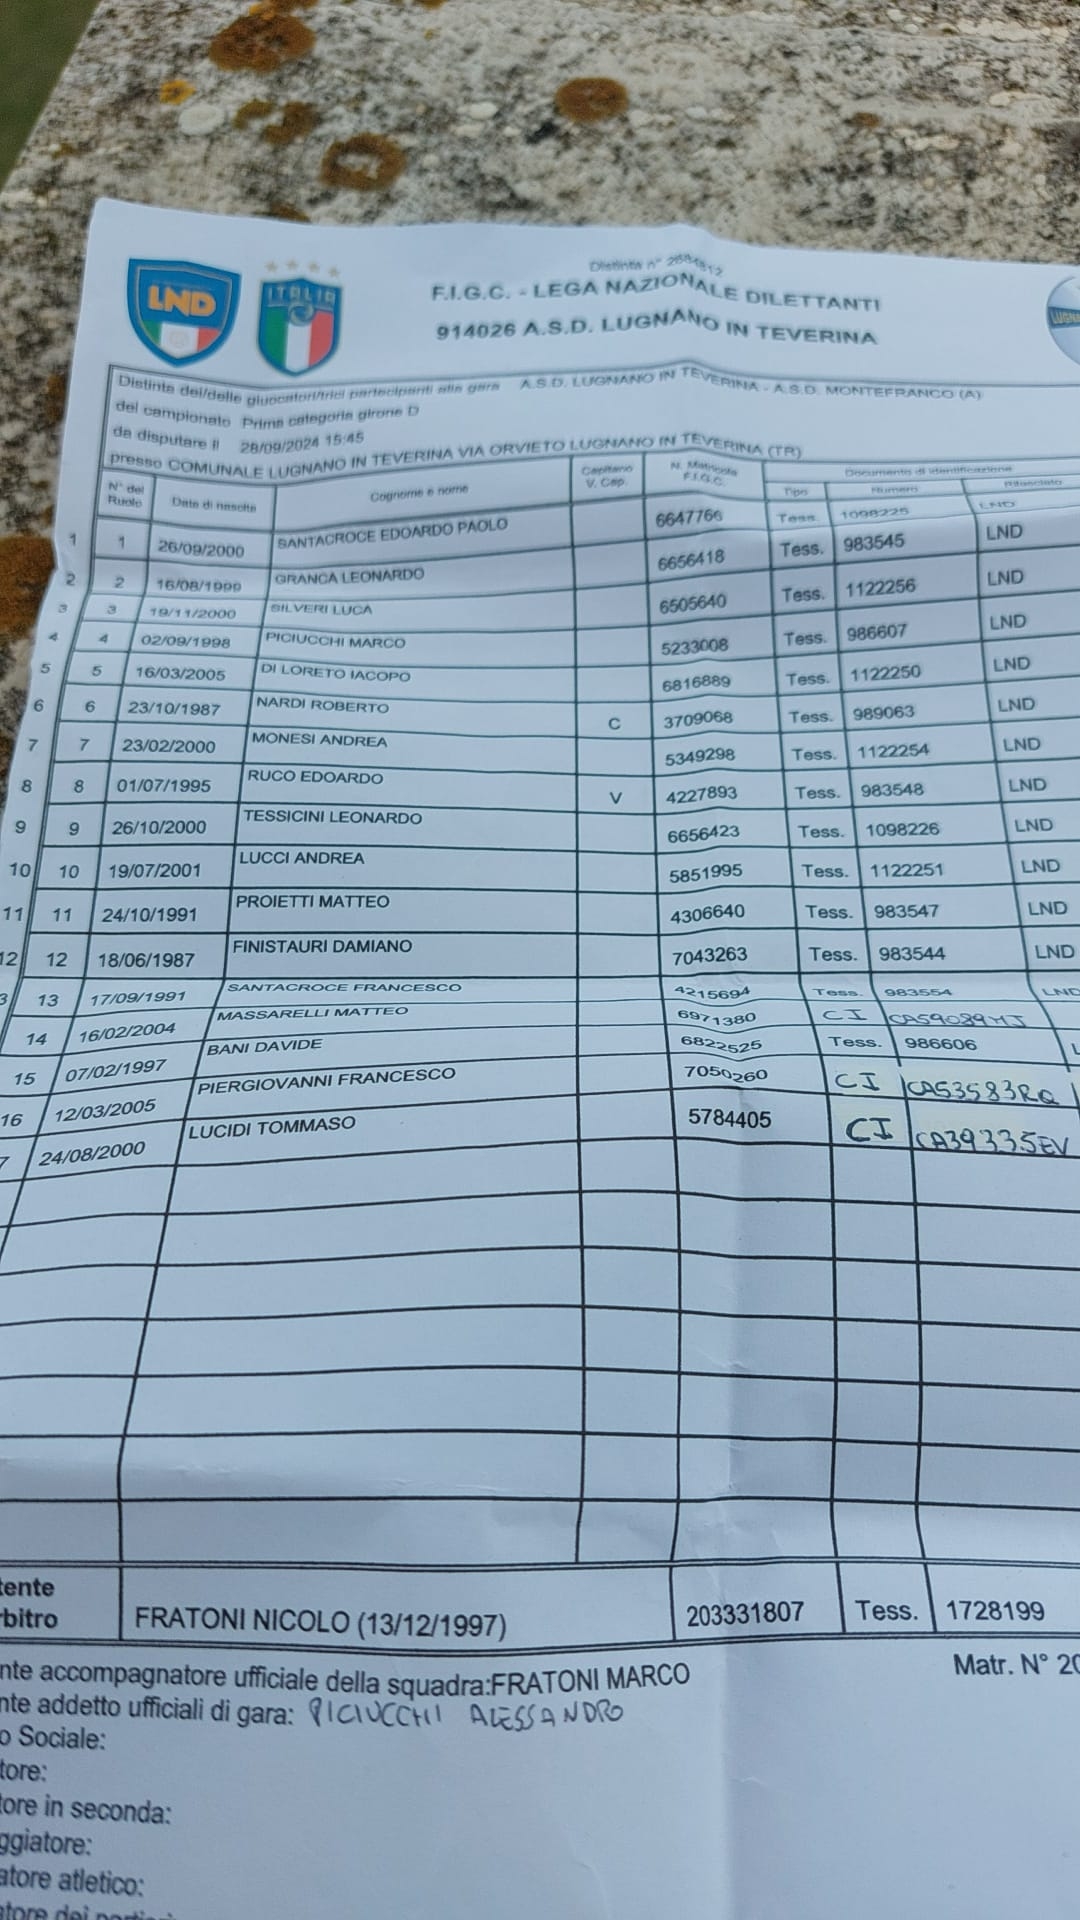 LND
ITALIA
Distinta n° 2684812
F.I.G.C. - LEGA NAZIONALE DILETTANTI
914026 A.S.D. LUGNANO IN TEVERINA
Distinta dei/delle giuocatori/trici partecipanti alla gara A.S.D. LUGNANO IN TEVERINA - A.S.D. MONTEFRANCO (A)
del campionato Prima categoria girone D
da disputare il 28/09/2024 15:45
presso COMUNALE LUGNANO IN TEVERINA VIA ORVIETO LUGNANO IN TEVERINA (TR)
N° del Ruolo Data di nascita Cognome e nome Capitano V. Cap. N. Matricola F.I.G.C. Documento di identificazione
Tipo Numero Rilasciato
1 1 26/09/2000 SANTACROCE EDOARDO PAOLO 6647766 Tess. 1098225 LND
2 2 16/08/1999 GRANCA LEONARDO 6656418 Tess. 983545 LND
3 3 19/11/2000 SILVERI LUCA 6505640 Tess. 1122256 LND
4 4 02/09/1998 PICIUCCHI MARCO 5233008 Tess. 986607 LND
5 5 16/03/2005 DI LORETO IACOPO 6816889 Tess. 1122250 LND
6 6 23/10/1987 NARDI ROBERTO C 3709068 Tess. 989063 LND
7 7 23/02/2000 MONESI ANDREA 5349298 Tess. 1122254 LND
8 8 01/07/1995 RUCO EDOARDO V 4227893 Tess. 983548 LND
9 9 26/10/2000 TESSICINI LEONARDO 6656423 Tess. 1098226 LND
10 10 19/07/2001 LUCCI ANDREA 5851995 Tess. 1122251 LND
11 11 24/10/1991 PROIETTI MATTEO 4306640 Tess. 983547 LND
12 12 18/06/1987 FINISTAURI DAMIANO 7043263 Tess. 983544 LND
3 13 17/09/1991 SANTACROCE FRANCESCO 4215694 Tess. 983554 LND
14 16/02/2004 MASSARELLI MATTEO 6971380 CI CA59089MJ
15 07/02/1997 BANI DAVIDE 6822525 Tess. 986606 L
16 12/03/2005 PIERGIOVANNI FRANCESCO 7050260 CI CA53583RQ
7 24/08/2000 LUCIDI TOMMASO 5784405 CI CA39335EV
tente
rbitro FRATONI NICOLO (13/12/1997) 203331807 Tess. 1728199
nte accompagnatore ufficiale della squadra:FRATONI MARCO Matr. N° 20
nte addetto ufficiali di gara: PICIUCCHI ALESSANDRO
o Sociale:
tore:
tore in seconda:
ggiatore:
atore atletico: